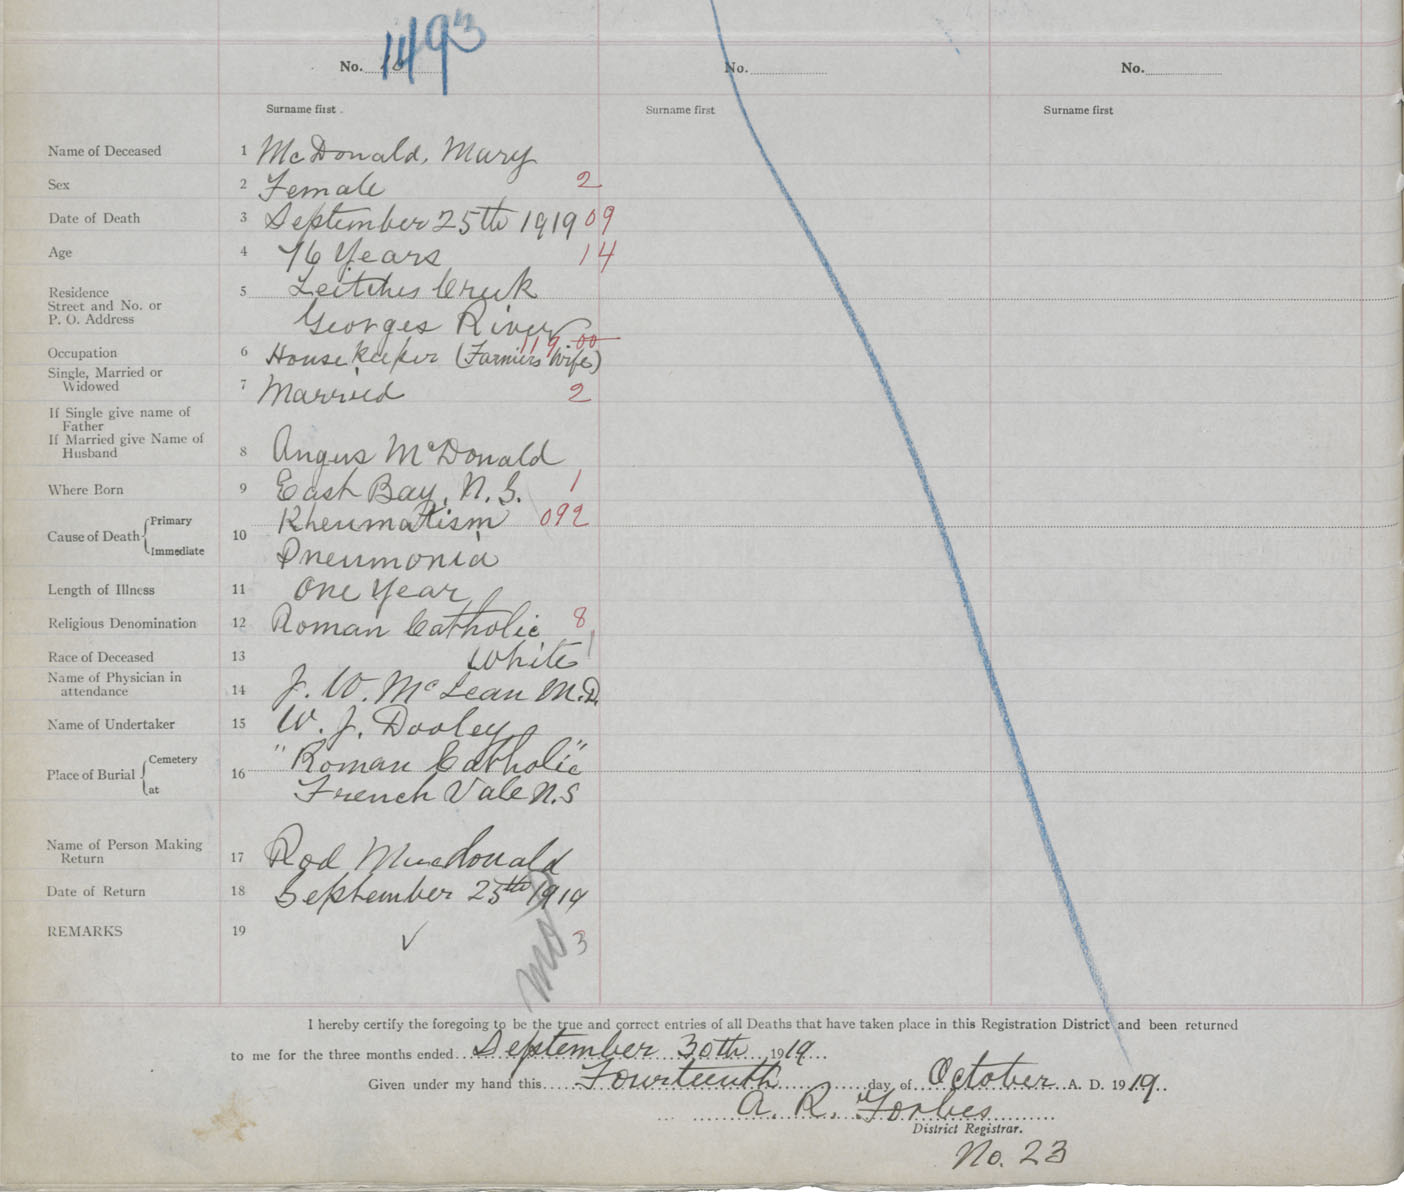 1493
No.
No.
No.
Surname first
Surname first
Surname first
Name of Deceased 1 McDonald, Mary
Sex 2 Female 2
Date of Death 3 September 25th 1919 09
Age 4 76 Years 14
Residence
Street and No. or
P. O. Address
5 Leitches Creek
Georges River
119 00
Occupation 6 Housekeeper (Farmers Wife)
Single, Married or
Widowed
7 Married 2
If Single give name of
Father
If Married give Name of
Husband
8 Angus McDonald
Where Born 9 East Bay, N.S. 1
Cause of Death Primary 10 Rheumatism 092
Immediate Pneumonia
Length of Illness 11 One Year
Religious Denomination 12 Roman Catholic 8
Race of Deceased 13 White 1
Name of Physician in
attendance
14 J. W. McLean M.D.
Name of Undertaker 15 W. J. Dooley
Place of Burial Cemetery 16 "Roman Catholic"
at French Vale N.S
Name of Person Making
Return
17 Rod MacDonald
Date of Return 18 September 25th 1919
REMARKS 19 ✓ 3
I hereby certify the foregoing to be the true and correct entries of all Deaths that have taken place in this Registration District and been returned
to me for the three months ended September 30th 1919
Given under my hand this Fourteenth day of October A. D. 1919
A. R. Forbes
District Registrar.
No. 23